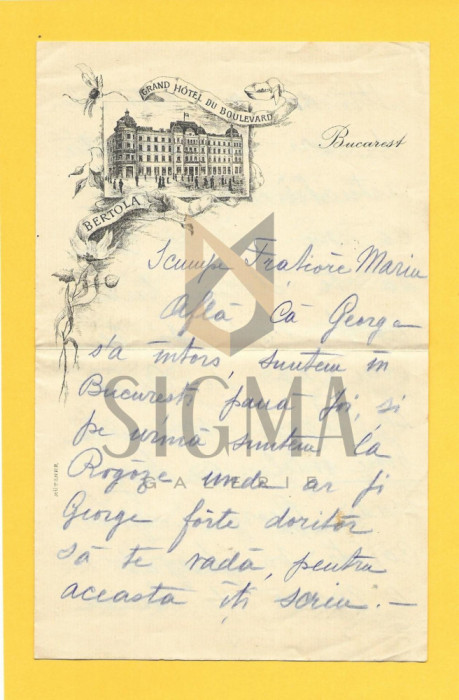 GRAND HÔTEL DU BOULEVARD
BERTOLA
Bucarest
Scumpe Frățiore Mariu
Află că George
s'a întors, suntem în
București până Joi, și
pe urmă suntem la
Rogoze unde ar fi
George fórte doritor
să te vadă, pentru
aceasta îți scriu. —
SIGMA
GALERIE